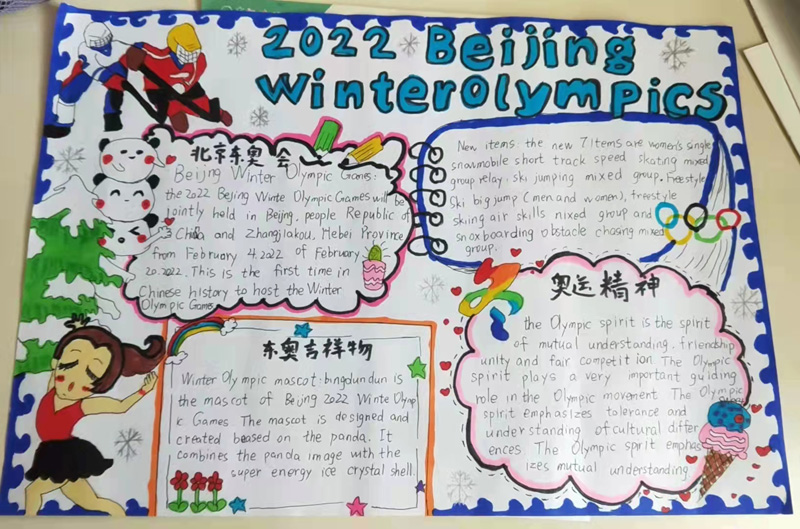 2022 Beijing
Winterolympics
北京冬奥会
Beijing Winter Olympic Games:
the 2022 Beijing Winte Olympic Games will be
jointly held in Beijng, people Republic of
China and Zhangjiakou, Hebei Province
from February 4.2022 of February
20.2022. This is the first time in
Chinese history to host the Winter
Olympic Games
New items the new 7 Items are women's single
snowmobile short track speed skating mixed
group relay. ski jumping mixed group. Freestyle
Ski big jump (men and women), freestyle
skiing air skills nixed group and
snowboarding obstacle chasing mixed
group.
冬奥吉祥物
Winter Olympic mascot: bingdundun is
the mascot of Beijing 2022 Winte Olymp
ic Games The mascot is designed and
created boased on the panda. It
combines the panda image with the
super energy ice crystal shell.
奥运精神
the Olympic spirit is the spirit
of mutual understanding. friendship
unity and fair competition The Olympic
spirit plays a very important guiding
role in the Olympic movement The Olympic
spirit emphasizes tolerance and
understanding of cultural differ
ences. The Olympic spirit emphas
izes mutual understanding